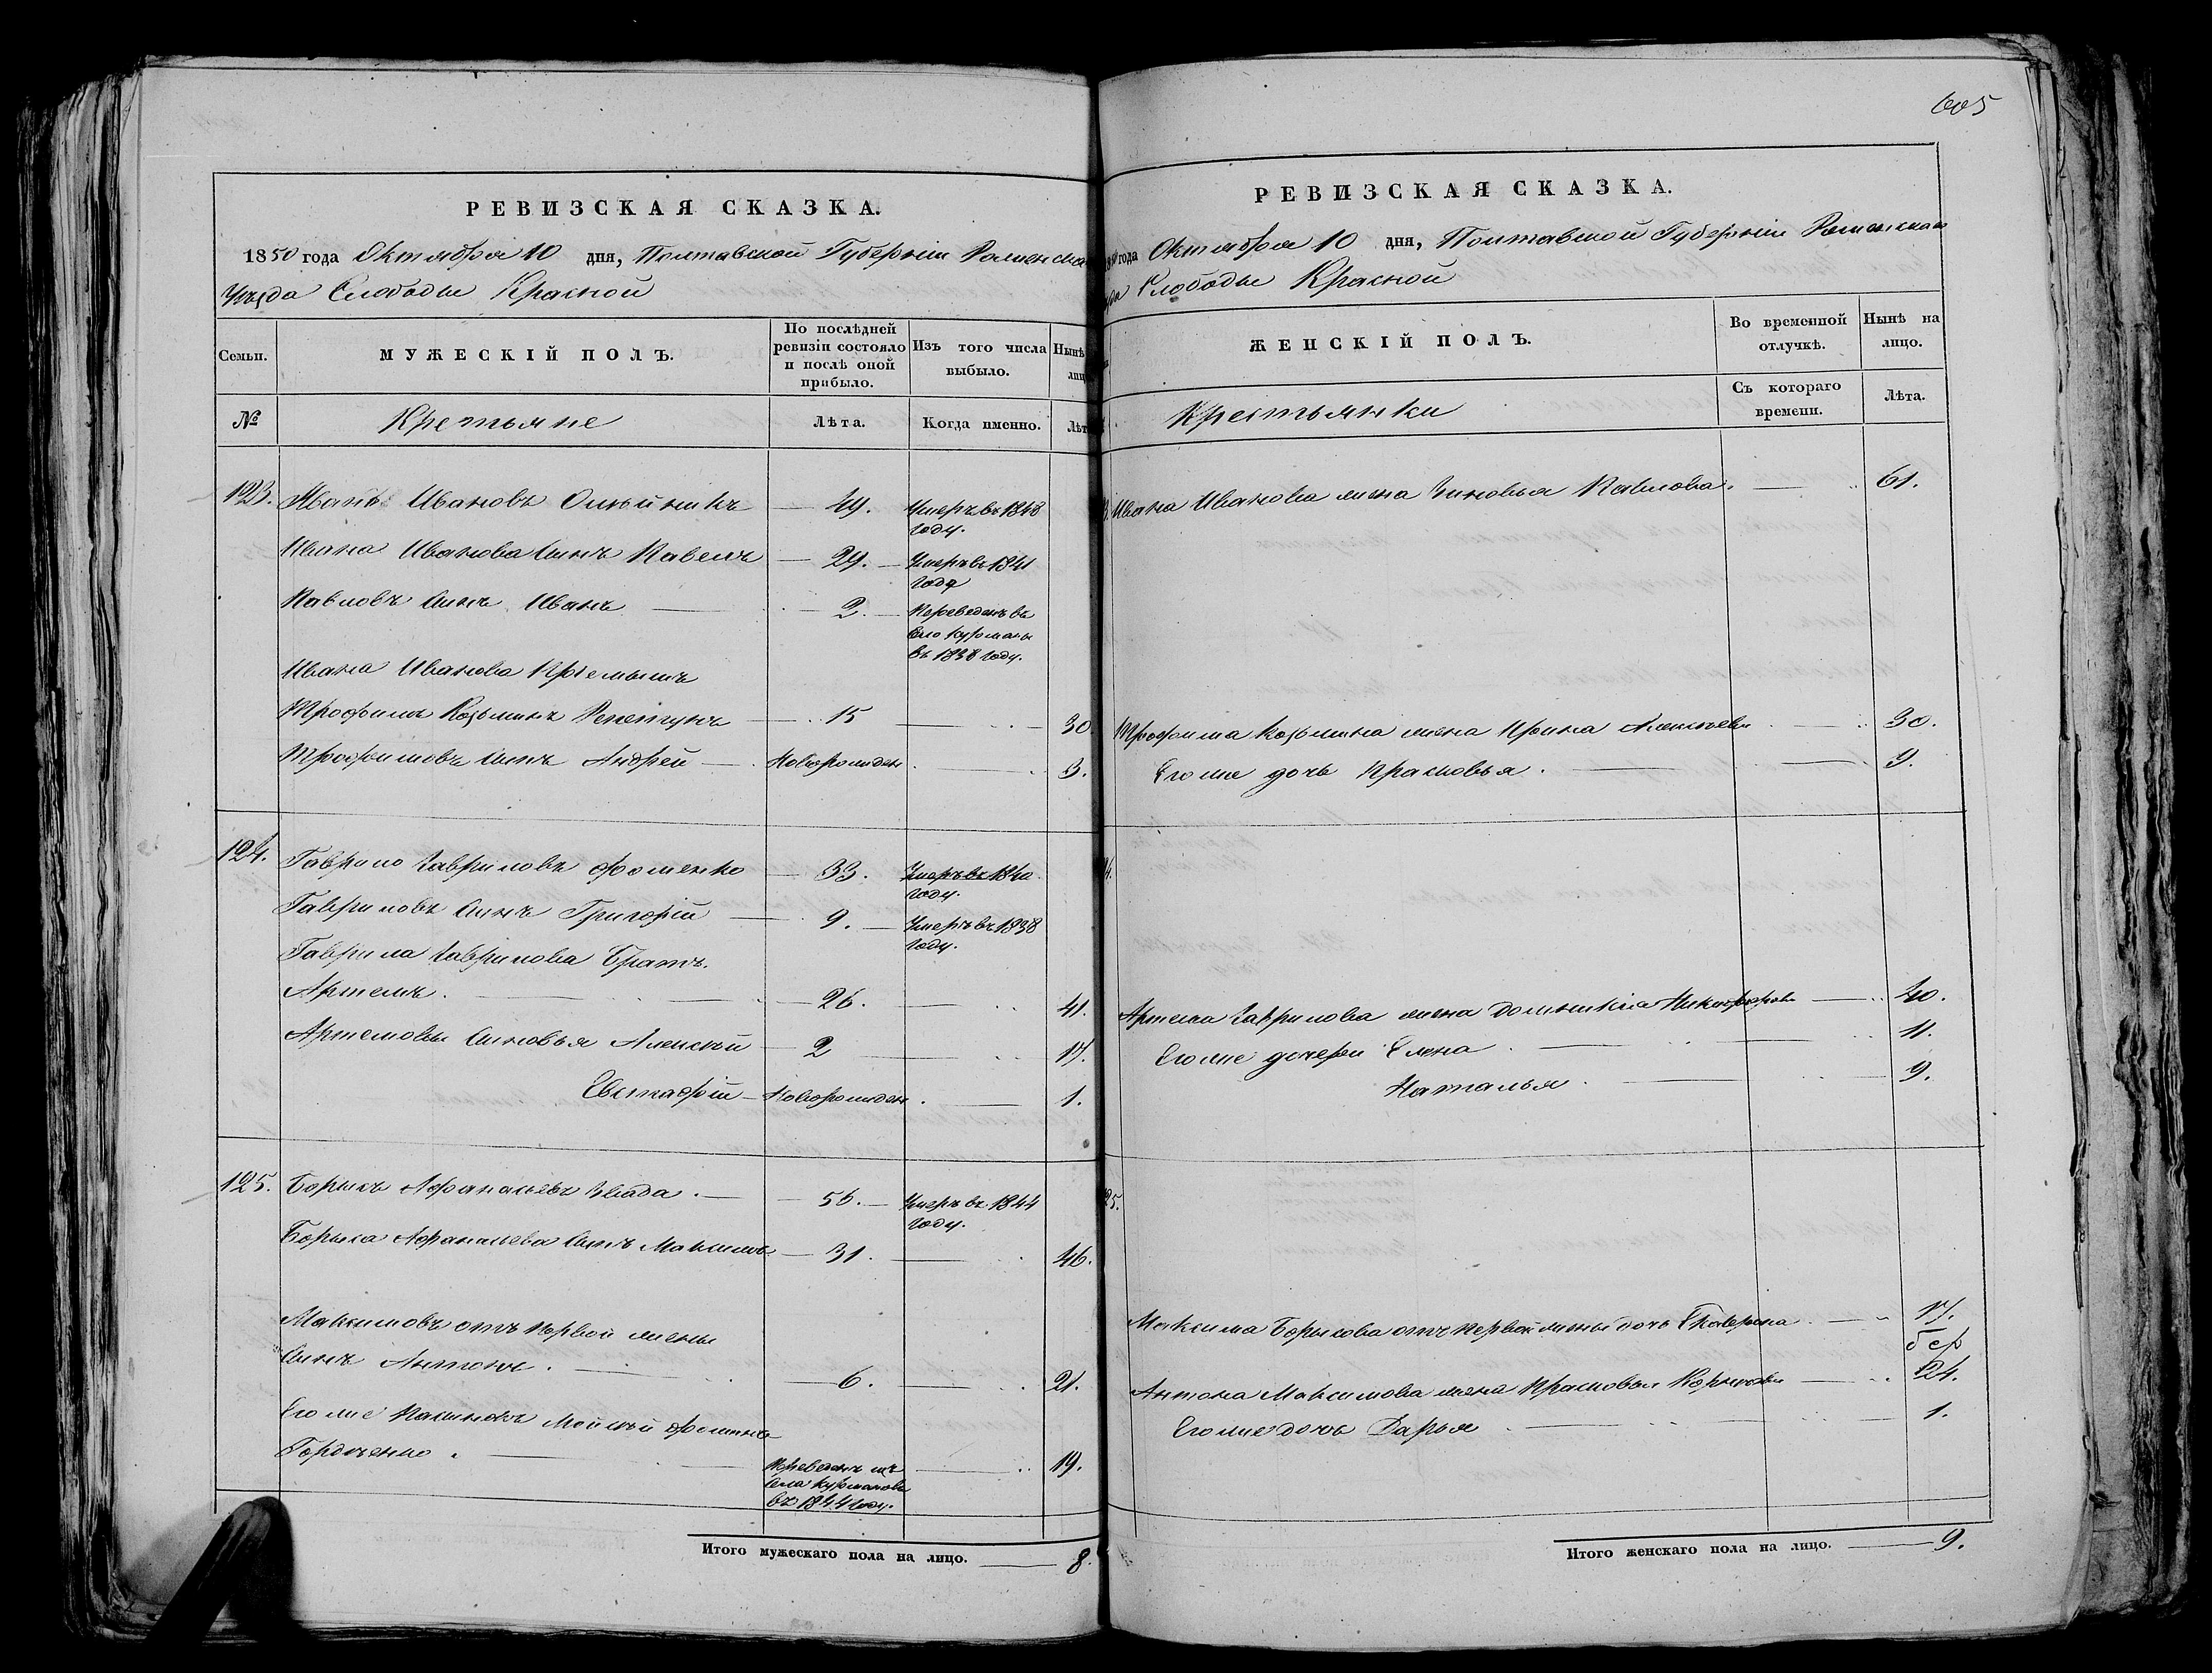 РЕВИЗСКАЯ СКАЗКА.
1850 года Октября 10 дня, Полтавской Губерніи Роменска
Уѣзда Слободы Красной
Семьи.
МУЖЕСКІЙ ПОЛЪ.
По послѣдней ревизіи состояло и послѣ оной прибыло.
Изъ того числа выбыло.
Нынѣ
№
Крестьяне
Лѣта.
Когда именно.
Лѣт
123. Иванъ Ивановъ Олѣйникъ — 49. Умеръ въ 1848
году.
Ивана Иванова сынъ Павелъ — 29. — Умеръ въ 1841
года
Павловъ сынъ Иванъ — 2. — Переведенъ въ
село Курманы
въ 1838 году.
Ивана Иванова Пріемышъ
Трофимъ Козьминъ — 15 — 30.
Трофимовъ сынъ Андрей — Новорожден. — 3.
124. Гаврило Гавриловъ Фоменко — 33. Умеръ въ 1840
году.
Гавриловъ сынъ Григорій — 9. — Умеръ въ 1838
году.
Гаврила Гаврилова Братъ
Артемъ. — 26. — 41.
Артемовы сыновья Алексѣй 2 — 17.
Евстафій — Новорожден. — 1.
125. Борисъ Афанасьевъ — 56. — Умеръ въ 1844
году.
Бориса Афанасьева сынъ Максимъ — 31. — 46.
Максимовъ отъ первой жены
сынъ Антонъ. — 6. — 21.
Его же Пасынокъ Мойсѣй Фомин
Гордѣенко. — Переведенъ изъ
села Курмановъ
въ 1844 году. — 19.
Итого мужескаго пола на лицо. — 8.
605
РЕВИЗСКАЯ СКАЗКА.
года Октября 10 дня, Полтавской Губерніи Роменскаго
Слободы Красной
ЖЕНСКІЙ ПОЛЪ.
Во временной отлучкѣ.
Нынѣ на лицо.
Крестьянки
Съ котораго времени.
Лѣта.
Ивана Иванова жена Зиновья Павлова. — 61.
Трофима Козьмина жена Ирина Алексѣева — 30.
Его же дочь Прасковья. — 9.
Артема Гаврилова жена Домникія Никифорова — 40.
Его же дочери Елена — 11.
Наталья. — 9.
25.
Максима Борисова отъ первой жены дочь Екатерина. — 17.
Антона Максимова жена Прасковья — 24.
Его же дочь Дарья — 1.
Итого женскаго пола на лицо. — 9.